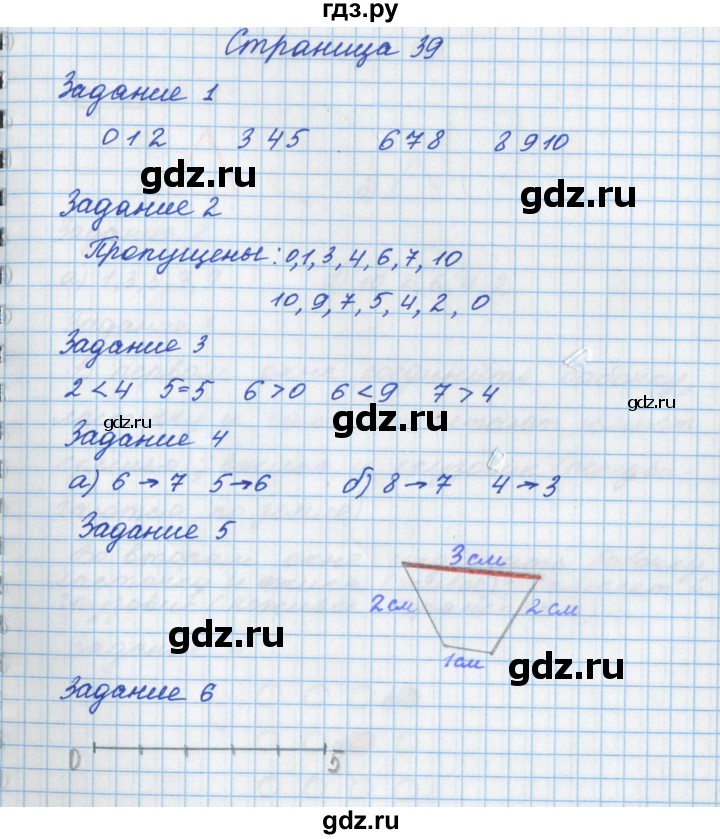 гдз.ру
Страница 39
Задание 1
0 1 2 3 4 5 6 7 8 8 9 10
gdz.ru gdz.ru
Задание 2
Пропущены: 0,1,3,4,6,7,10
10,9,7,5,4,2,0
Задание 3
2<4 5=5 6>0 6<9 7>4
gdz.ru gdz.ru
Задание 4
а) 6→7 5→6 б) 8→7 4→3
Задание 5
3 см
2 см 2 см
gdz.ru
1 см
gdz.ru
Задание 6
0 5
gdz.ru